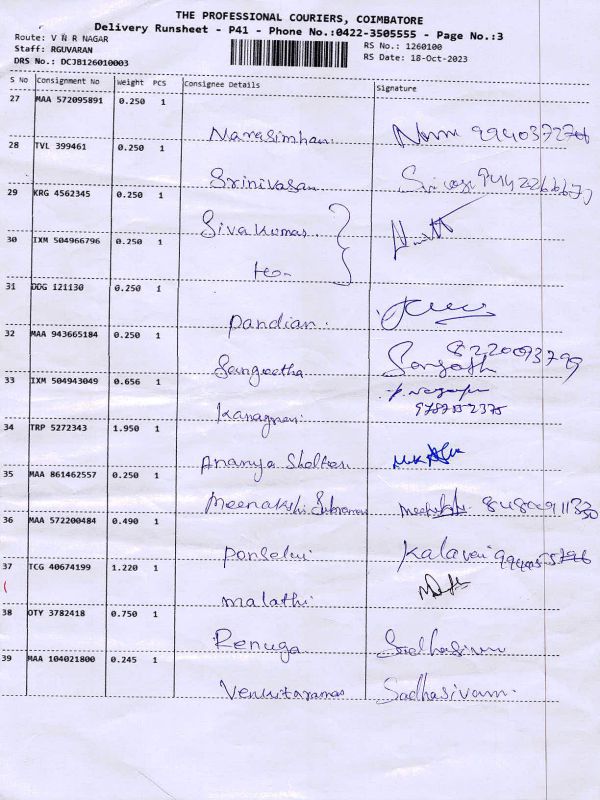 THE PROFESSIONAL COURIERS, COIMBATORE
Delivery Runsheet - P41 - Phone No.:0422-3505555 - Page No.:3
Route: V N R NAGAR
Staff: RGUVARAN
DRS No.: DCJB126010003
RS No.: 1260100
RS Date: 18-Oct-2023
S No Consignment No Weight PCS Consignee Details Signature
27 MAA 572095891 0.250 1
Narasimhan
28 TVL 399461 0.250 1
Srinivasan
29 KRG 4562345 0.250 1
Sivakumar
30 IXM 504966796 0.250 1
teo
31 DDG 121130 0.250 1
Pandian.
32 MAA 943665184 0.250 1
Sangeetha 8220093799
33 IXM 504943049 0.656 1
34 TRP 5272343 1.950 1
Ananya
35 MAA 861462557 0.250 1
Meenakshi
36 MAA 572200484 0.490 1
Ponselvi
37 TCG 40674199 1.220 1
malathi
38 OTY 3782418 0.750 1
Renuga Sadhasivam
39 MAA 104021800 0.245 1
Venkitaraman Sadhasivam.